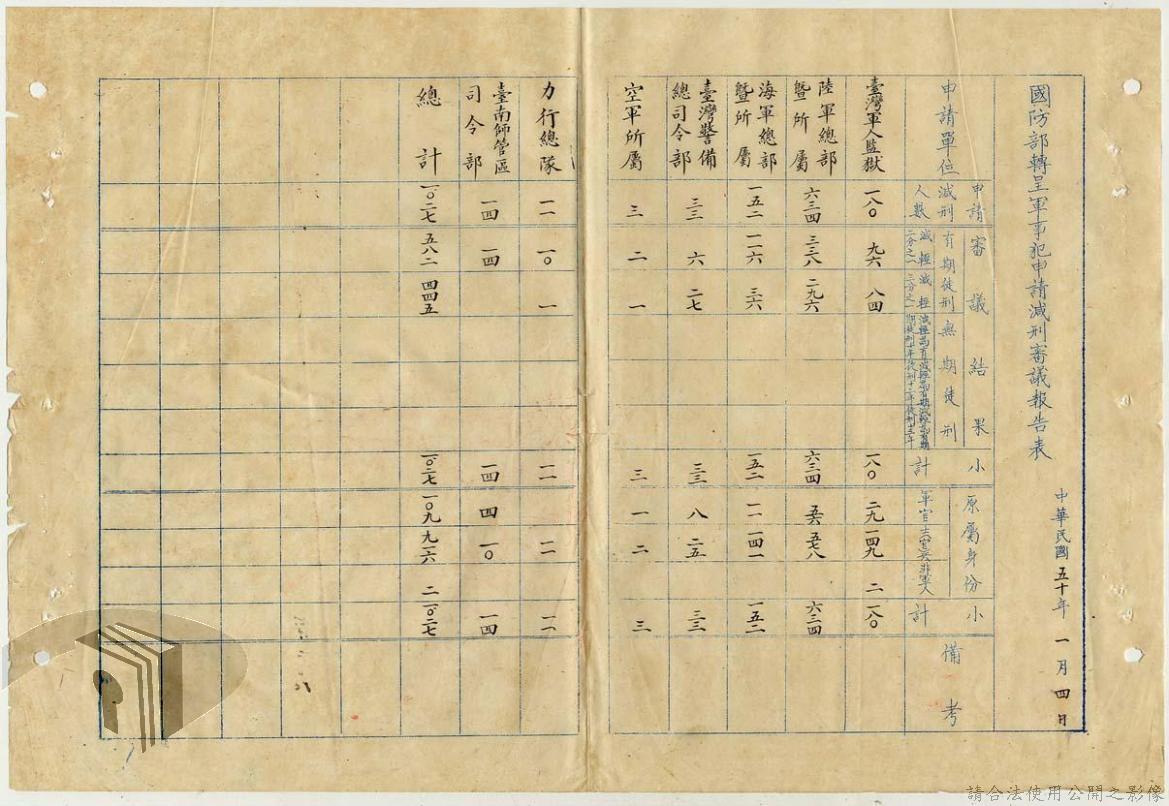 國防部轉呈軍事犯申請減刑審議報告表
中華民國五十年一月四日
申請單位
申請減刑人數
審議結果
有期徒刑
減輕二分之一
減輕三分之一
無期徒刑
小計
原屬身份
軍官
士官兵
非軍人
小計
備考
臺灣軍人監獄
一八〇
九六
八四
一八〇
二九
一四九
二
一八〇
陸軍總部暨所屬
六三四
三三八
二九六
六三四
五六
五七八
六三四
海軍總部暨所屬
一五二
一一六
三六
一五二
一一
一四一
一五二
臺灣警備總司令部
三三
六
二七
三三
八
二五
三三
空軍所屬
三
二
一
三
一
二
三
力行總隊
一一
一〇
一
一一
一一
一一
臺南師管區司令部
一四
一四
一四
四
一〇
一四
總計
一〇二七
五八二
四四五
一〇二七
一〇九
九一六
二
一〇二七
請合法使用公開之影像